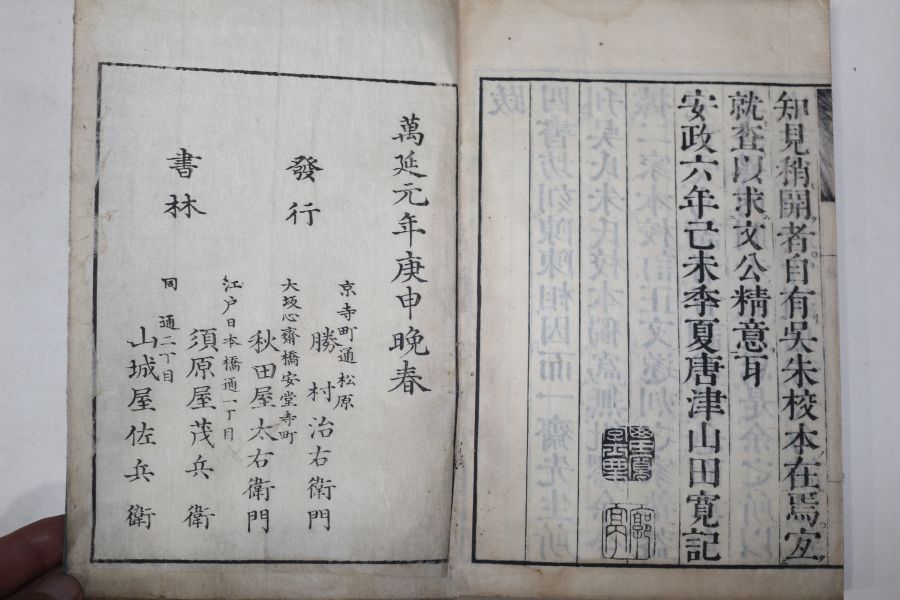 知見稍開者自有吳朱校本在焉宜
就查以求文公精意耳
安政六年己未季夏唐津山田寛記
萬延元年庚申晩春
發行
書林
京寺町通松原
勝村治右衛門
大坂心齋橋安堂寺町
秋田屋太右衛門
江戸日本橋通一丁目
須原屋茂兵衛
同通二丁目
山城屋佐兵衛